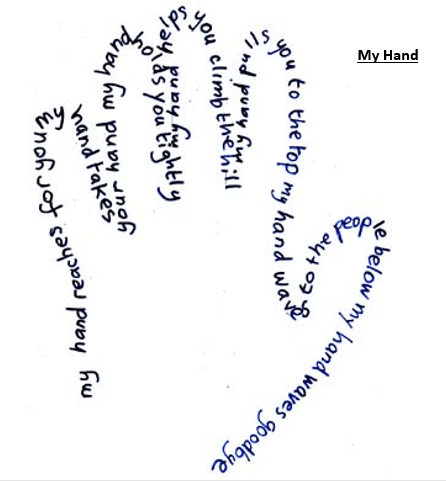 My Hand
my hand reaches for your
my hand takes
your hand my hand holds you tightly
my hand helps you climb the hill
my hand pulls you to the top my hand waves to the people below my hand waves goodbye